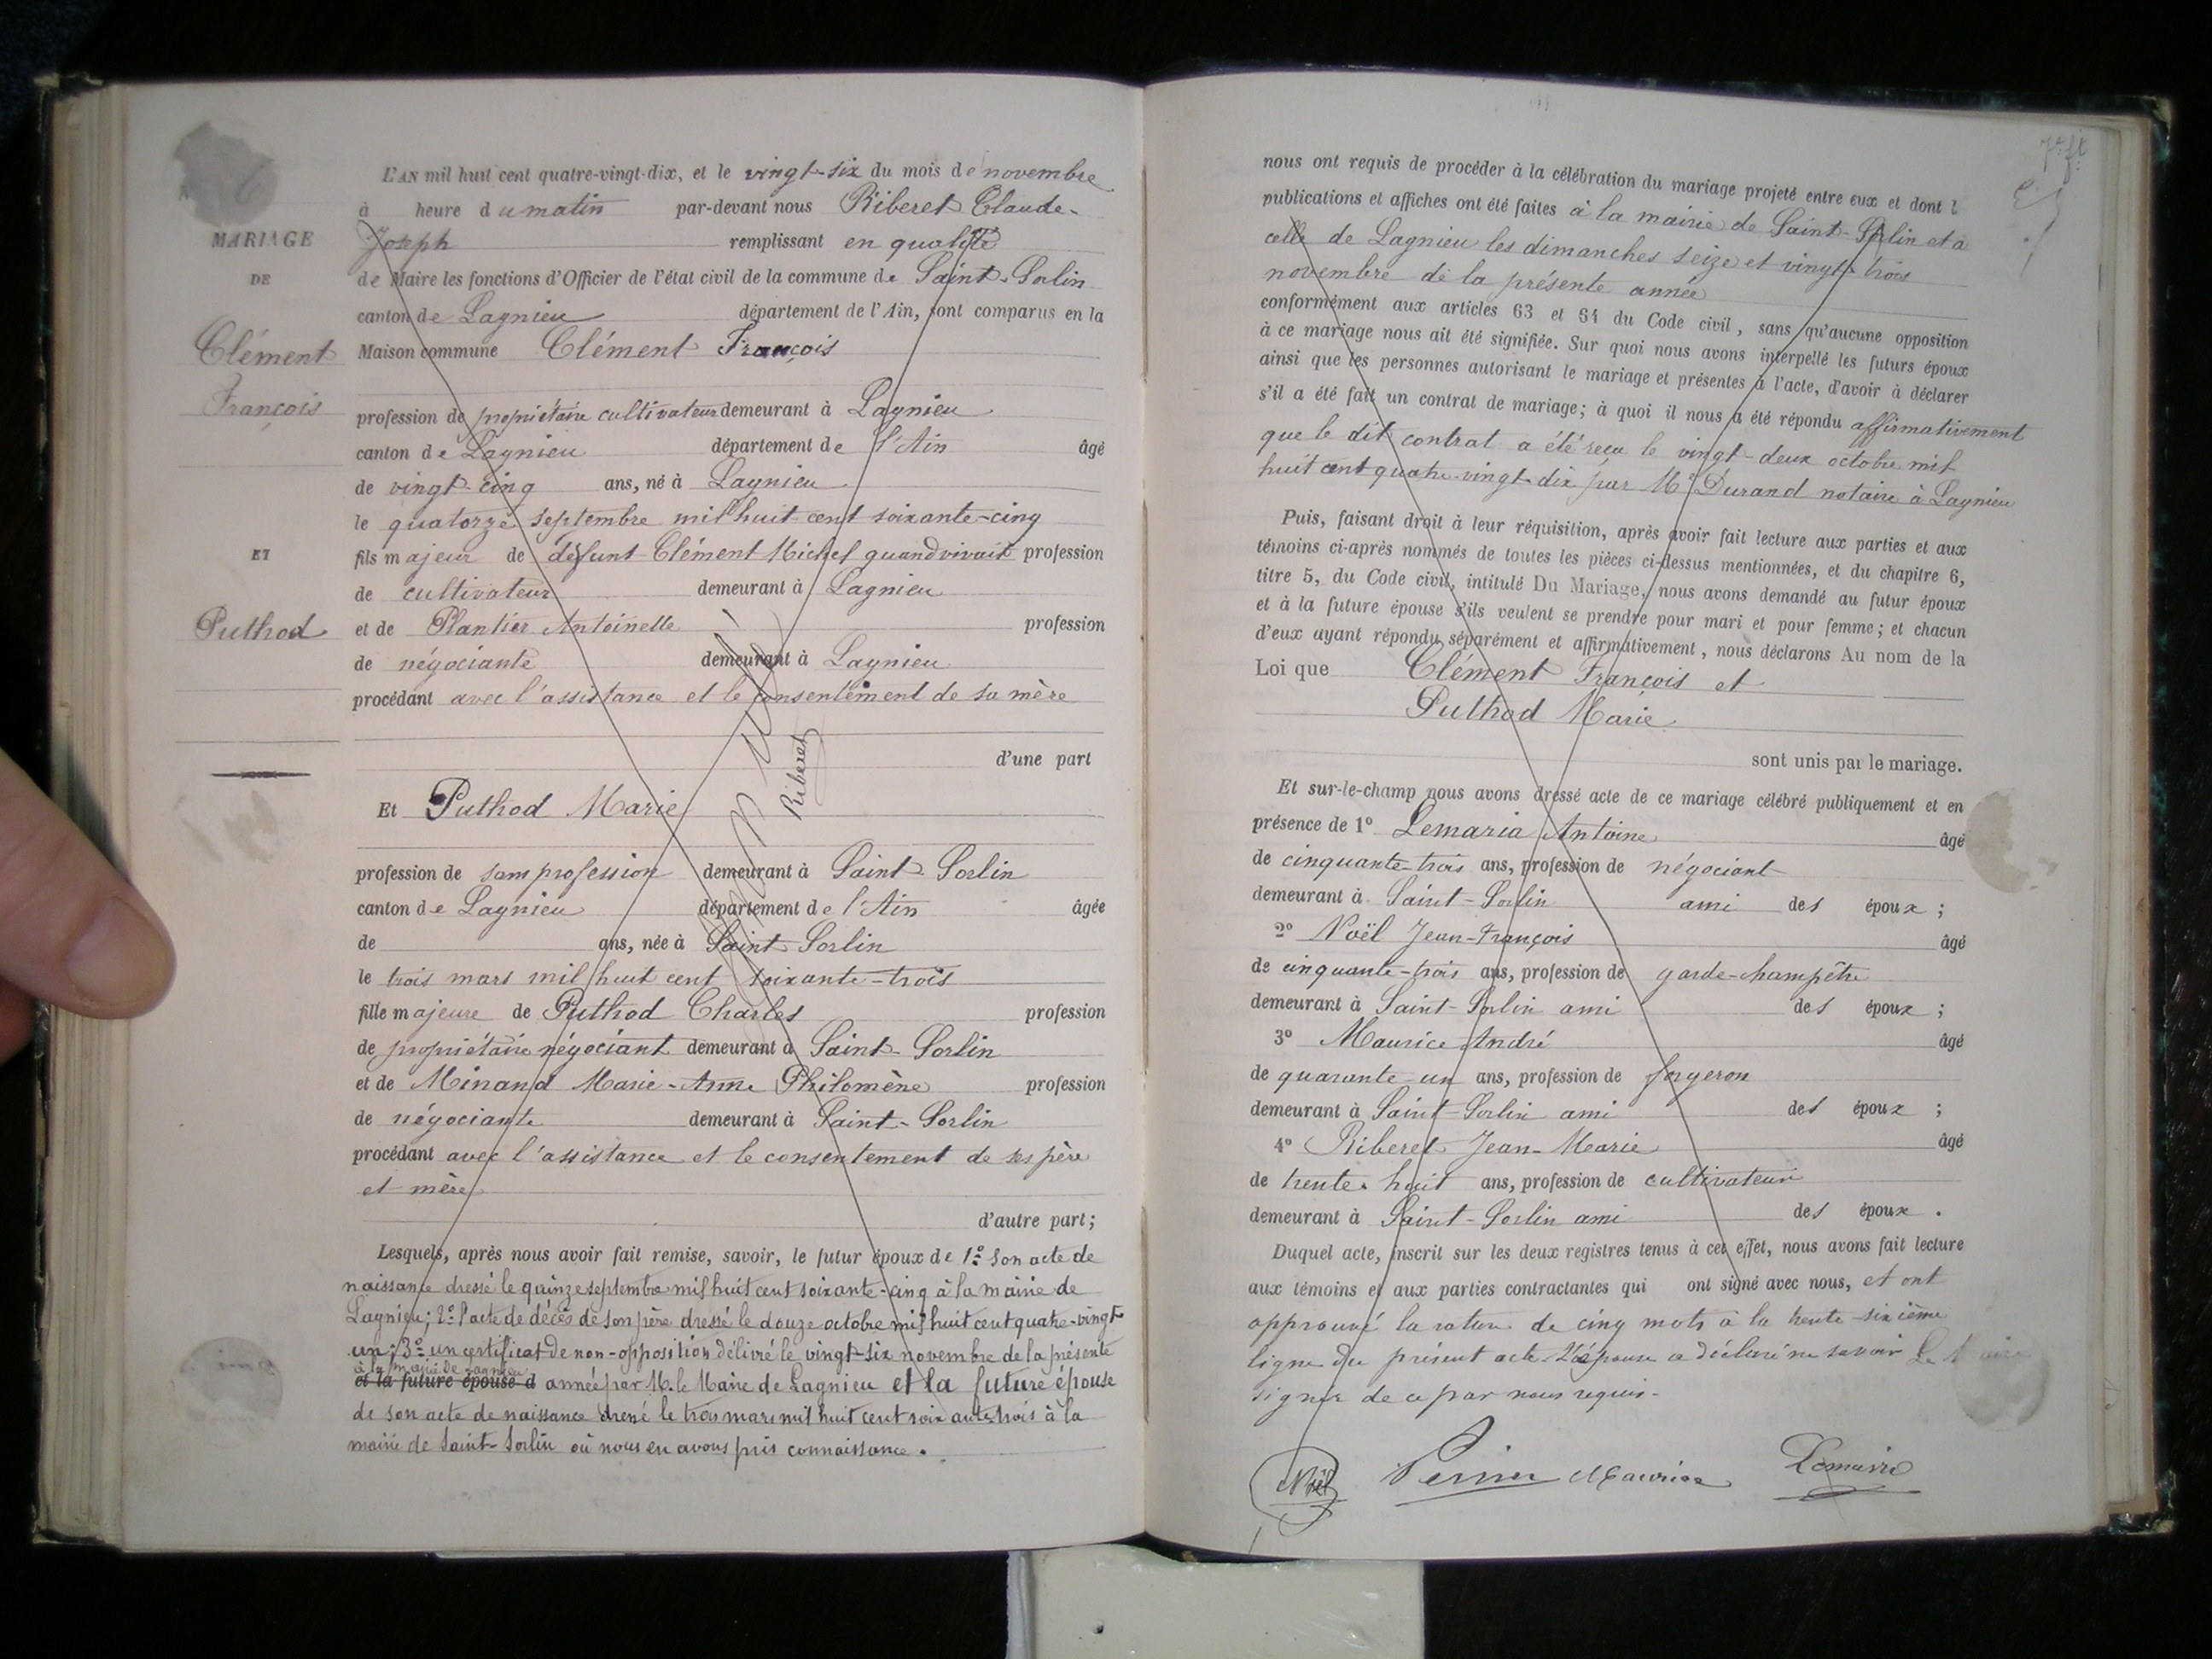 L'AN mil huit cent quatre-vingt-dix, et le vingt-six du mois de novembre
à heure du matin par-devant nous Riberet Claude-
MARIAGE
Joseph remplissant en qualité
DE
de Maire les fonctions d'Officier de l'état civil de la commune de Saint-Sorlin
canton de Lagnieu département de l'Ain, sont comparus en la
Clément
Maison commune Clément François
François
profession de propriétaire cultivateur demeurant à Lagnieu
canton de Lagnieu département de l'Ain âgé
de vingt-cinq ans, né à Lagnieu
le quatorze septembre mil huit cent soixante-cinq
ET
fils majeur de défunt Clément Michel quand vivait profession
de cultivateur demeurant à Lagnieu
Puthod
et de Plantier Antoinette profession
de négociante demeurant à Lagnieu
procédant avec l'assistance et le consentement de sa mère
d'une part
Riberet
Et Puthod Marie
profession de sans profession demeurant à Saint-Sorlin
canton de Lagnieu département de l'Ain âgée
de ans, née à Saint-Sorlin
le trois mars mil huit cent soixante-trois
fille majeure de Puthod Charles profession
de propriétaire négociant demeurant à Saint-Sorlin
et de Minand Marie-Anne Philomène profession
de négociante demeurant à Saint-Sorlin
procédant avec l'assistance et le consentement de ses père
et mère
d'autre part;
Lesquels, après nous avoir fait remise, savoir, le futur époux de 1º son acte de
naissance dressé le quinze septembre mil huit cent soixante-cinq à la mairie de
Lagnieu; 2º l'acte de décès de son père dressé le douze octobre mil huit cent quatre-vingt
un; 3º un certificat de non-opposition délivré le vingt-six novembre de la présente
à la mairie de Lagnieu
et la future épouse d année par M. le Maire de Lagnieu et la future épouse
de son acte de naissance dressé le trois mars mil huit cent soixante trois à la
mairie de Saint-Sorlin où nous en avons pris connaissance.
nous ont requis de procéder à la célébration du mariage projeté entre eux et dont l
publications et affiches ont été faites à la mairie de Saint-Sorlin et à
celle de Lagnieu les dimanches seize et vingt-trois
novembre de la présente année
conformément aux articles 63 et 64 du Code civil, sans qu'aucune opposition
à ce mariage nous ait été signifiée. Sur quoi nous avons interpellé les futurs époux
ainsi que les personnes autorisant le mariage et présentes à l'acte, d'avoir à déclarer
s'il a été fait un contrat de mariage; à quoi il nous a été répondu affirmativement
que le dit contrat a été reçu le vingt-deux octobre mil
huit cent quatre-vingt-dix par Mº Durand notaire à Lagnieu
Puis, faisant droit à leur réquisition, après avoir fait lecture aux parties et aux
témoins ci-après nommés de toutes les pièces ci-dessus mentionnées, et du chapitre 6,
titre 5, du Code civil, intitulé Du Mariage, nous avons demandé au futur époux
et à la future épouse s'ils veulent se prendre pour mari et pour femme; et chacun
d'eux ayant répondu séparément et affirmativement, nous déclarons Au nom de la
Loi que Clément François et
Puthod Marie
sont unis par le mariage.
Et sur-le-champ nous avons dressé acte de ce mariage célébré publiquement et en
présence de 1º Lemaria Antoine âgé
de cinquante-trois ans, profession de négociant
demeurant à Saint-Sorlin ami des époux;
2º Noël Jean-François âgé
de cinquante-trois ans, profession de garde-champêtre
demeurant à Saint-Sorlin ami des époux;
3º Maurice André âgé
de quarante-un ans, profession de forgeron
demeurant à Saint-Sorlin ami des époux;
4º Riberet Jean-Marie âgé
de trente-huit ans, profession de cultivateur
demeurant à Saint-Sorlin ami des époux.
Duquel acte, inscrit sur les deux registres tenus à cet effet, nous avons fait lecture
aux témoins et aux parties contractantes qui ont signé avec nous, et ont
approuvé la rature de cinq mots à la trente-sixième
ligne du présent acte. L'épouse a déclaré ne savoir
signer de ce par nous requis-
Noël Maurice